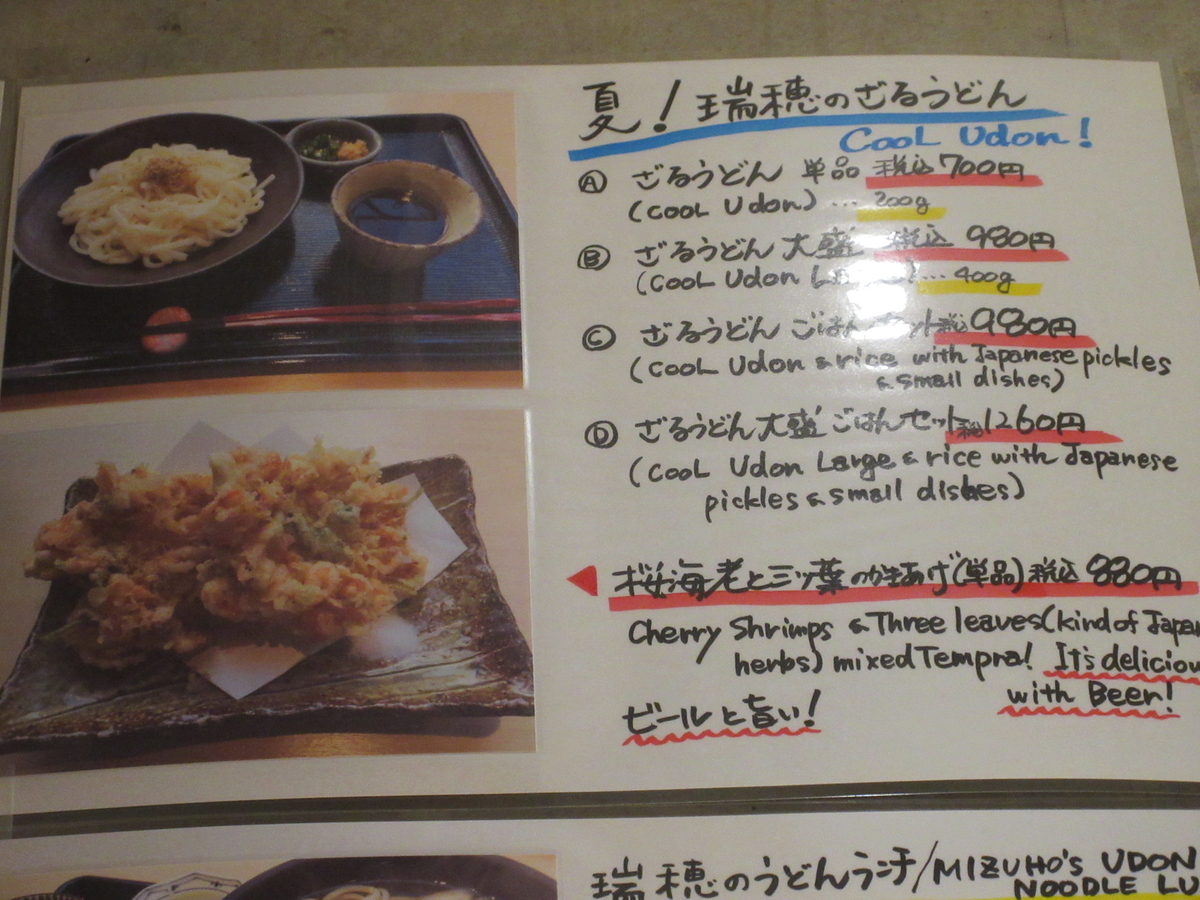 夏！瑞穂のざるうどん
Cool Udon!
Ⓐ ざるうどん 単品 税込700円
(Cool Udon) … 200g
Ⓑ ざるうどん 大盛 税込 980円
(Cool Udon … 400g
Ⓒ ざるうどん ごはんセット税込980円
(Cool Udon & rice with Japanese pickles
& small dishes)
Ⓓ ざるうどん大盛ごはんセット税込1260円
(Cool Udon Large & rice with Japanese
pickles & small dishes)
◀桜海老と三ツ葉のかきあげ(単品)税込880円
Cherry Shrimps & Three leaves(kind of Japan
herbs) mixed Tempra! It's deliciou
with Beer!
ビールと旨い！
瑞穂のうどんランチ/MIZUHO'S UDON
NOODLE LU